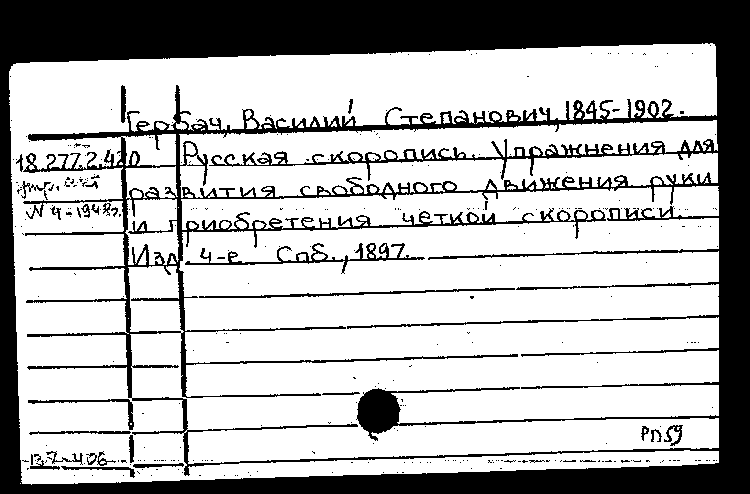 Гербач, Василий Степанович, 1845-1902.
18.277.2.420 Русская скоропись. Упражнения для
развития свободного движения руки
N 4-1948г.
и приобретения четкой скорописи.
Изд. 4-е Спб., 1897.
Рп59
137-406